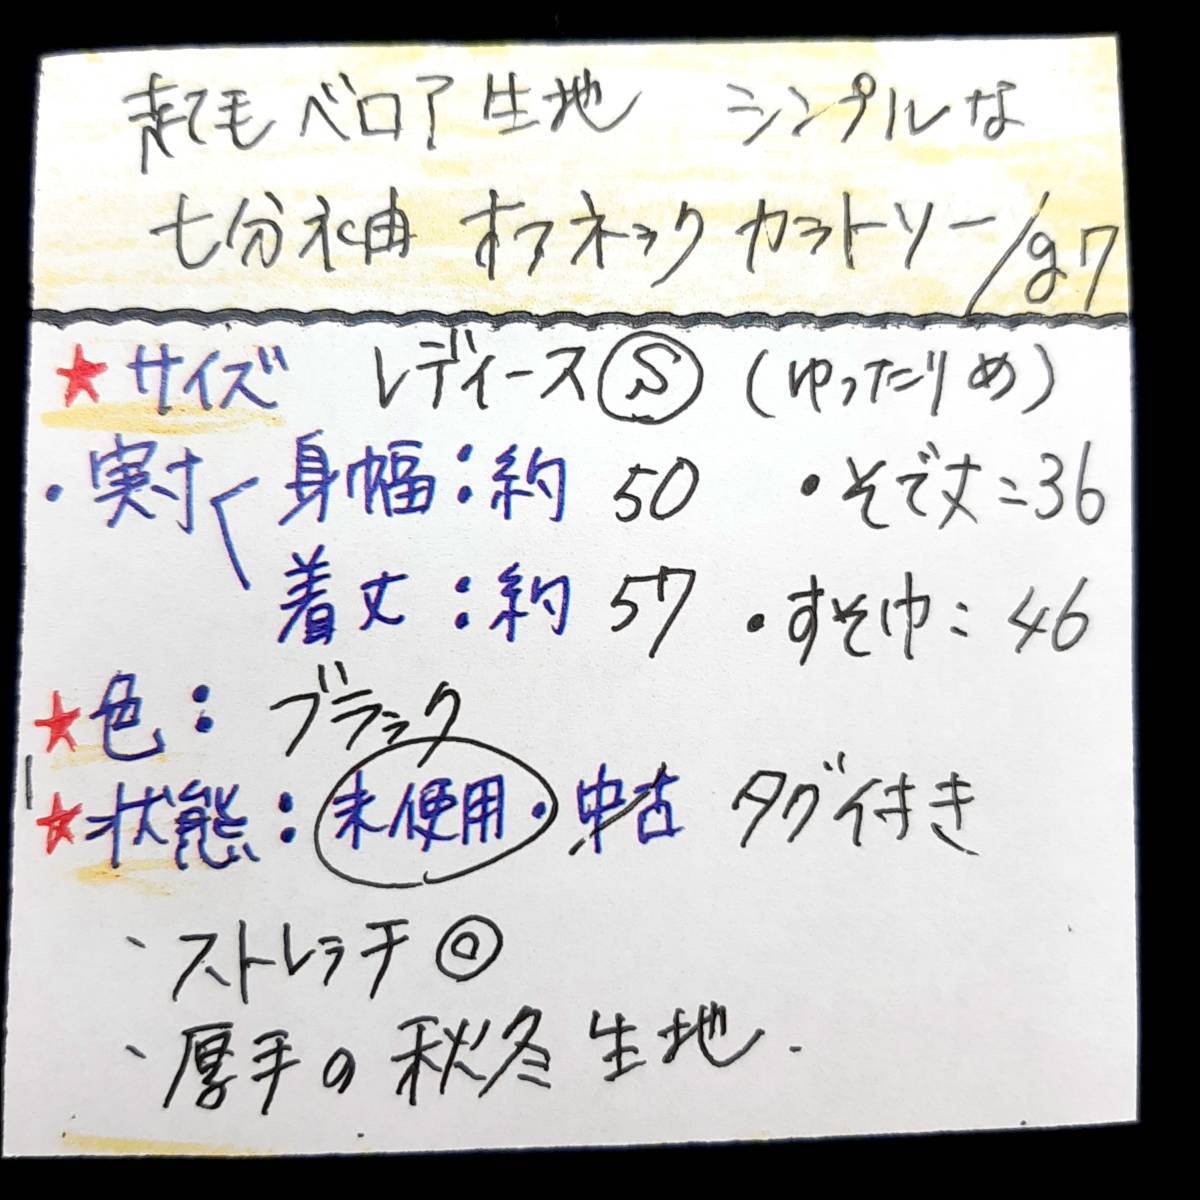 起毛ベロア生地 シンプルな
七分袖 オフネック カットソー/g7
★サイズ レディースⓈ (ゆったりめ)
・実寸<身幅:約 50 ・そで丈=36
着丈:約 57 ・すそ巾=46
★色:ブラック
★状態:未使用・中古 タグ付き
、ストレッチ◎
、厚手の秋冬生地.